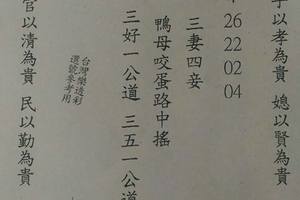 子以孝為貴 媳以賢為貴
26
22
02
04
三妻四妾
鴨母咬蛋路中搖
三好一公道 三五一公道
台灣樂透彩
選號參考用
官以清為貴 民以勤為貴